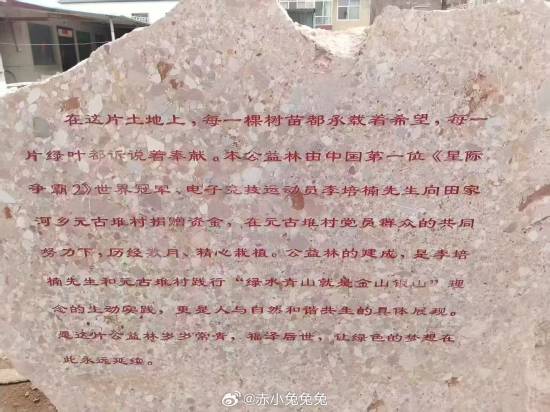 在这片土地上，每一棵树苗都承载着希望，每一
片绿叶都诉说着奉献。本公益林由中国第一位《星际
争霸2》世界冠军、电子竞技运动员李培楠先生向田家
河乡元古堆村捐赠资金，在元古堆村党员群众的共同
努力下，历经数月、精心栽植。公益林的建成，是李培
楠先生和元古堆村践行“绿水青山就是金山银山”理
念的生动实践，更是人与自然和谐共生的具体展现。
愿这片公益林岁岁常青，福泽后世，让绿色的梦想在
此永远延续。
@赤小兔兔兔